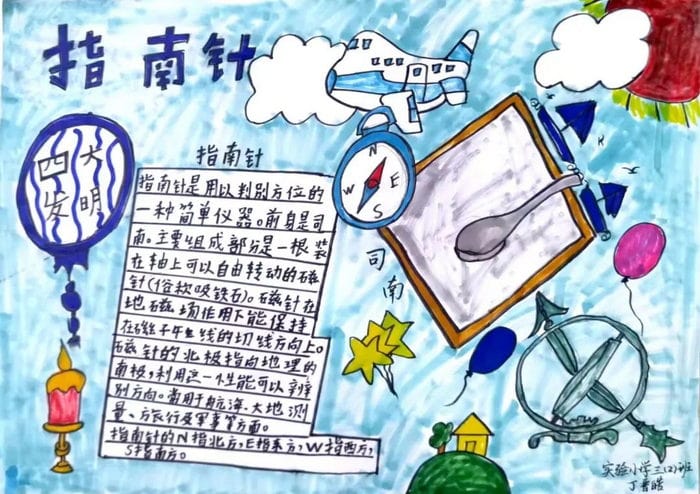 指南针
四大
发明
指南针
指南针是用以判别方位的
一种简单仪器。前身是司
南。主要组成部分是一根装
在轴上可以自由转动的磁
针(俗称吸铁石)。磁针在
地磁场作用下能保持
在磁子午线的切线方向上。
磁针的北极指向地理的
南极,利用这一性能可以辨
别方向。常用于航海、大地测
量、旅行及军事等方面。
指南针的N指北方,E指东方,W指西方,
S指南方。
N
W
E
S
司
南
实验小学三(2)班
丁